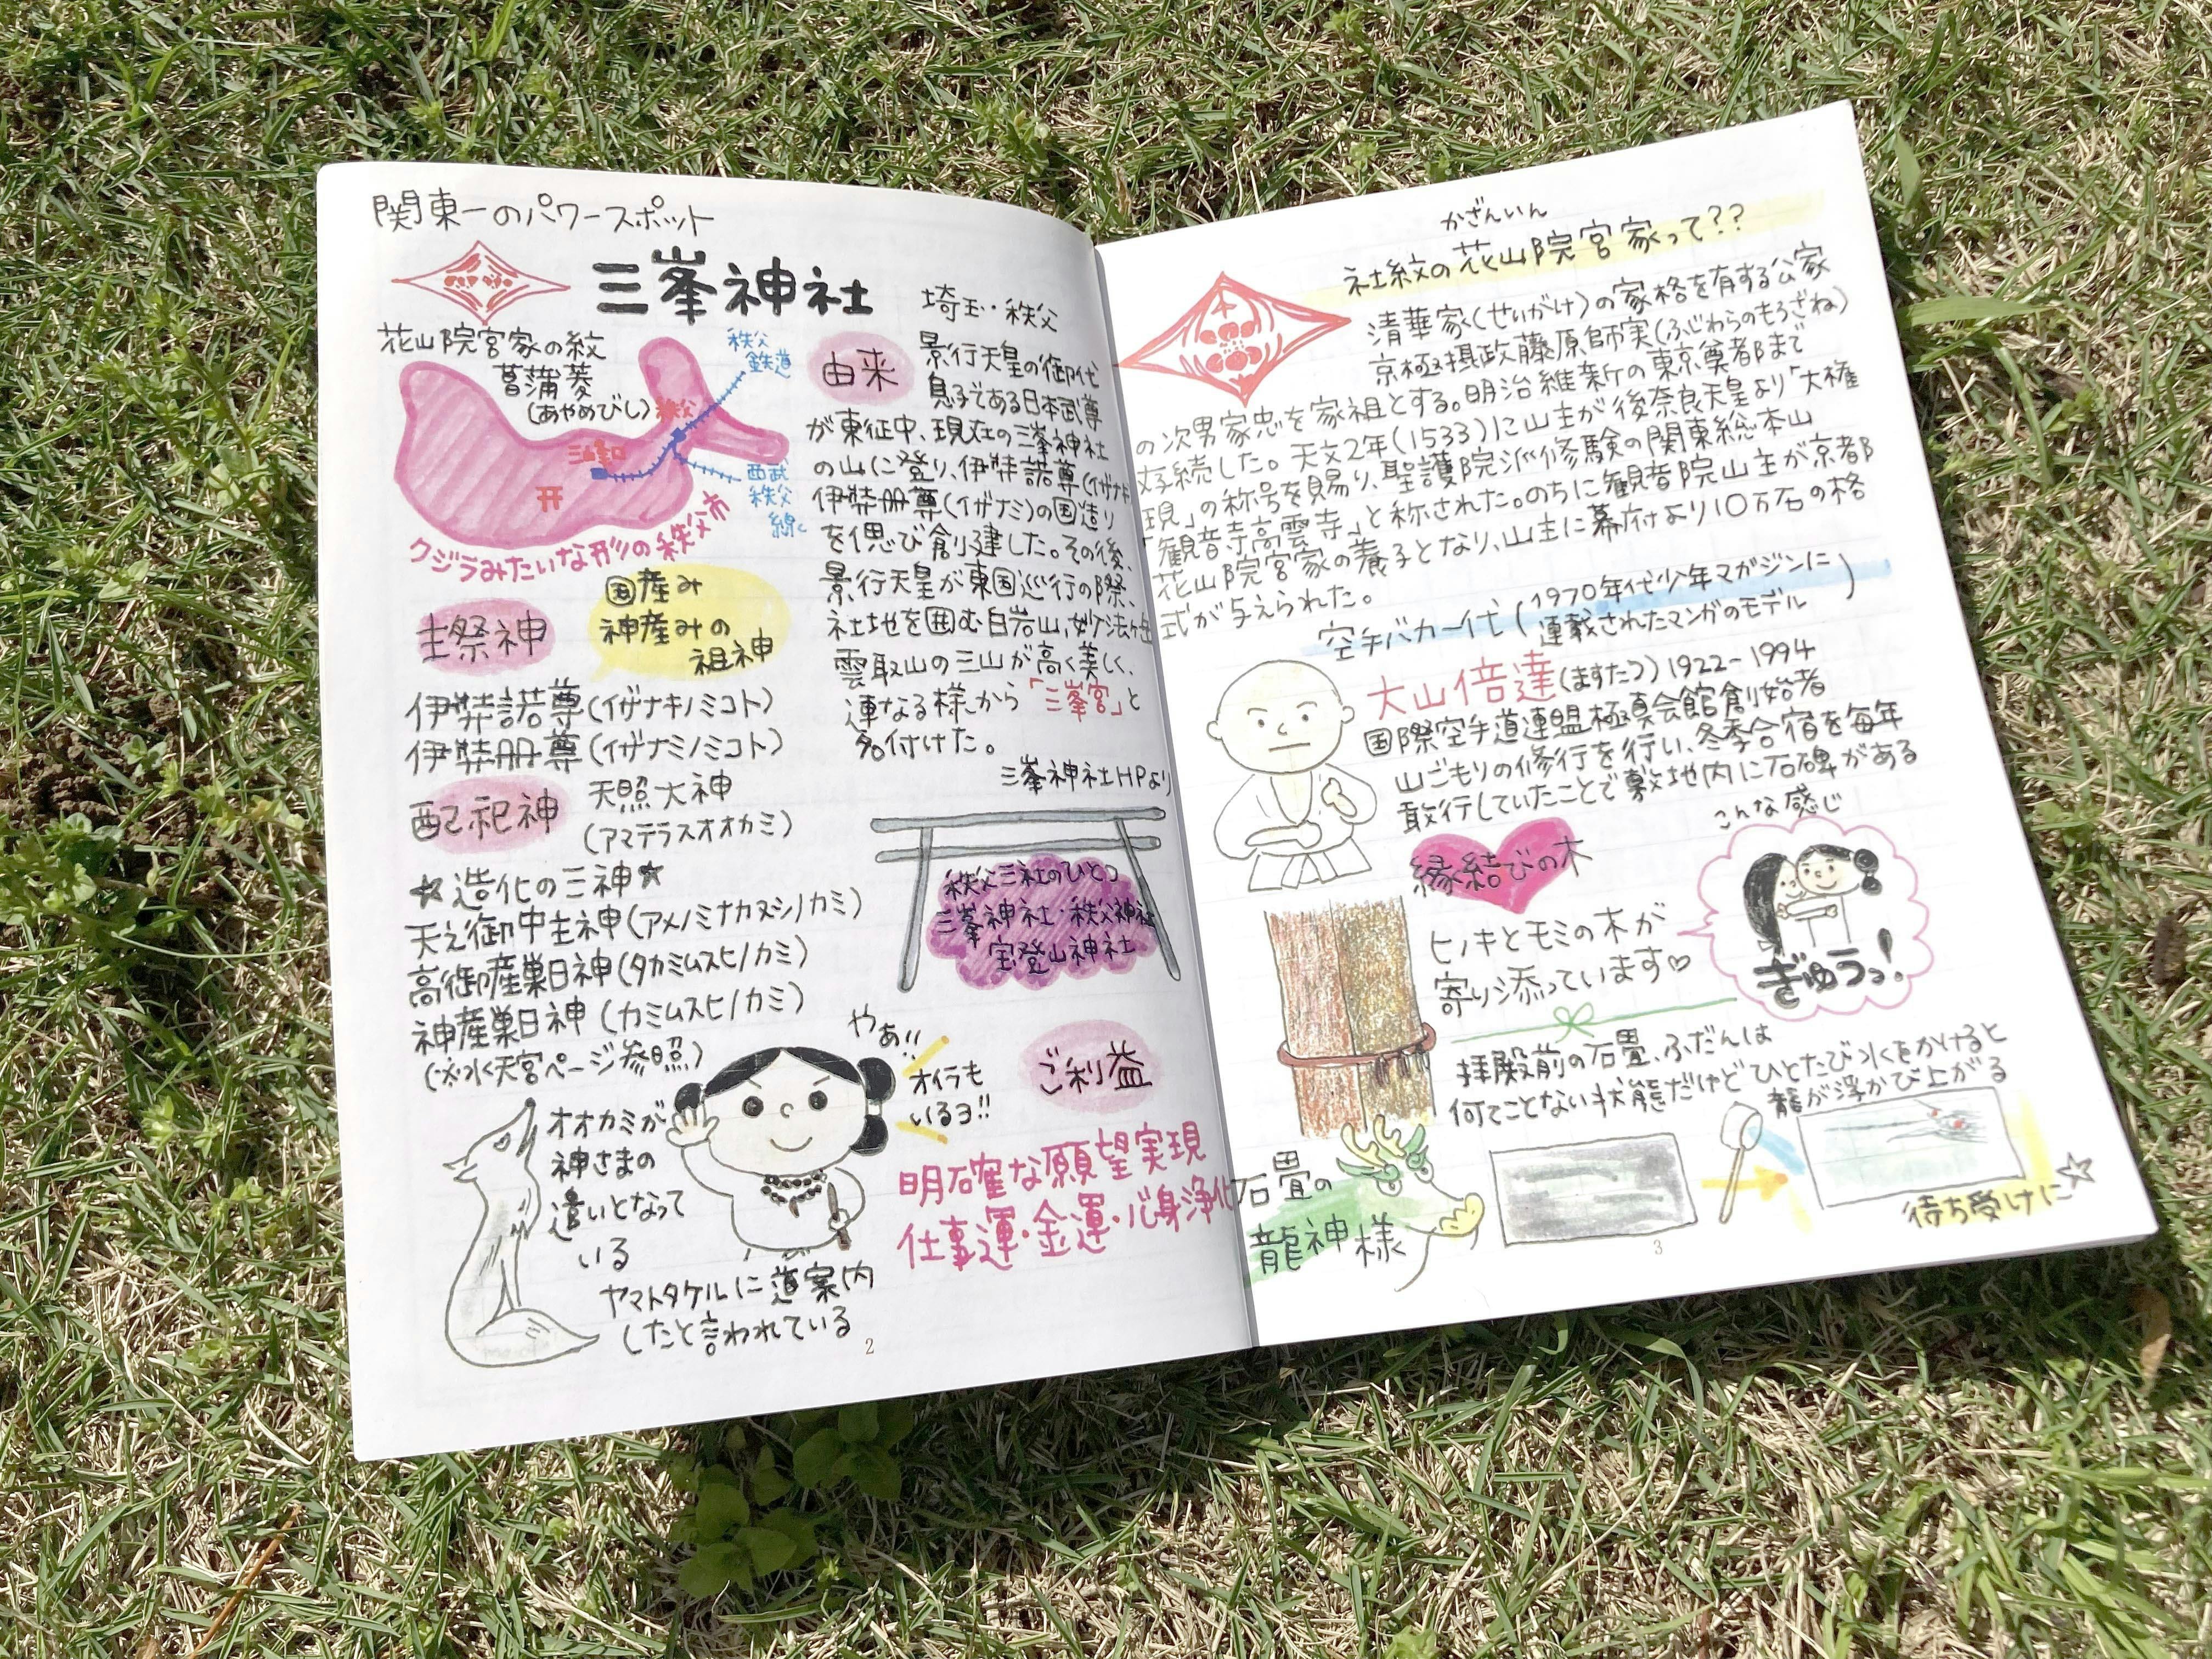 関東一のパワースポット
三峯神社
埼玉・秩父
花山院宮家の紋
菖蒲菱
(あやめびし)
秩父
鉄道
秩父
三峰口
西武
秩父
線
クジラみたいな形の秩父市
主祭神
国産み
神産みの
祖神
伊弉諾尊(イザナキノミコト)
伊弉册尊(イザナミノミコト)
配祀神
天照大神
(アマテラスオオカミ)
☆造化の三神☆
天之御中主神(アメノミナカヌシノカミ)
高御産巣日神(タカミムスヒノカミ)
神産巣日神(カミムスヒノカミ)
(水天宮ページ参照)
オオカミが
神さまの
遣いとなって
いる
ヤマトタケルに道案内
したと言われている
やぁ!!
オイラも
いるヨ!!
由来
景行天皇の御代
息子である日本武尊
が東征中、現在の三峯神社
の山に登り、伊弉諾尊(イザナキ
伊弉册尊(イザナミ)の国造り
を偲び創建した。その後、
景行天皇が東国巡行の際、
社地を囲む白岩山、妙法ヶ岳
雲取山の三山が高く美しく、
連なる様から「三峯宮」と
名付けた。
三峯神社HPより
秩父三社のひとつ
三峯神社・秩父神社
宝登山神社
ご利益
明確な願望実現
仕事運・金運・心身浄化
2
かざんいん
社紋の花山院宮家って??
清華家(せいがけ)の家格を有する公家
京極摂政藤原師実(ふじわらのもろざね)
の次男家忠を家祖とする。明治維新の東京奠都まで
存続した。天文2年(1533)に山主が後奈良天皇より「大権
現」の称号を賜り、聖護院派修験の関東総本山
「観音寺高雲寺」と称された。のちに観音院山主が京都
花山院宮家の養子となり、山主に幕府より10万石の格
式が与えられた。
空手バカ一代(1970年代少年マガジンに
連載されたマンガのモデル)
大山倍達(ますたつ)1922-1994
国際空手道連盟極真会館創始者
山ごもりの修行を行い、冬季合宿を毎年
敢行していたことで敷地内に石碑がある
縁結びの木
こんな感じ
ぎゅうっ!
ヒノキとモミの木が
寄り添っています♡
拝殿前の石畳、ふだんは
何てことない状態だけどひとたび水をかけると
龍が浮かび上がる
石畳の
龍神様
待ち受けに☆
3